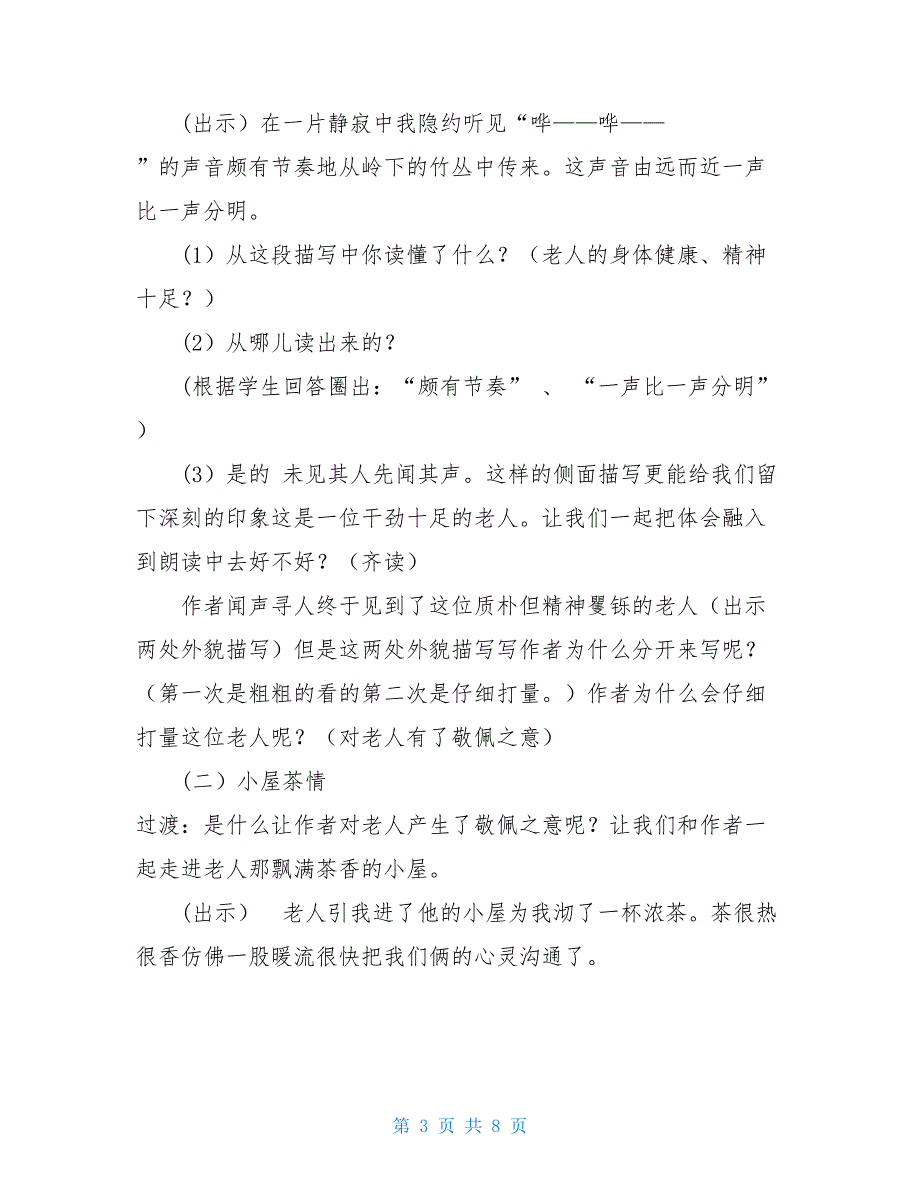 (出示）在一片静寂中我隐约听见“哗——哗——
”的声音颇有节奏地从岭下的竹丛中传来。这声音由远而近一声
比一声分明。
(1）从这段描写中你读懂了什么？（老人的身体健康、精神
十足？）
(2）从哪儿读出来的？
(根据学生回答圈出：“颇有节奏” 、 “一声比一声分明”
）
(3）是的 未见其人先闻其声。这样的侧面描写更能给我们留
下深刻的印象这是一位干劲十足的老人。让我们一起把体会融入
到朗读中去好不好？（齐读）
作者闻声寻人终于见到了这位质朴但精神矍铄的老人（出示
两处外貌描写）但是这两处外貌描写写作者为什么分开来写呢？
（第一次是粗粗的看的第二次是仔细打量。）作者为什么会仔细
打量这位老人呢？（对老人有了敬佩之意）
(二）小屋茶情
过渡：是什么让作者对老人产生了敬佩之意呢？让我们和作者一
起走进老人那飘满茶香的小屋。
(出示） 老人引我进了他的小屋为我沏了一杯浓茶。茶很热
很香仿佛一股暖流很快把我们俩的心灵沟通了。
第 3 页 共 8 页